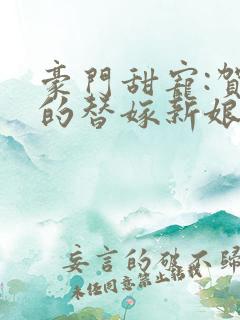 豪門甜寵:賀
的替嫁新娘
妄言的破不歸
未任同意禁止轉載